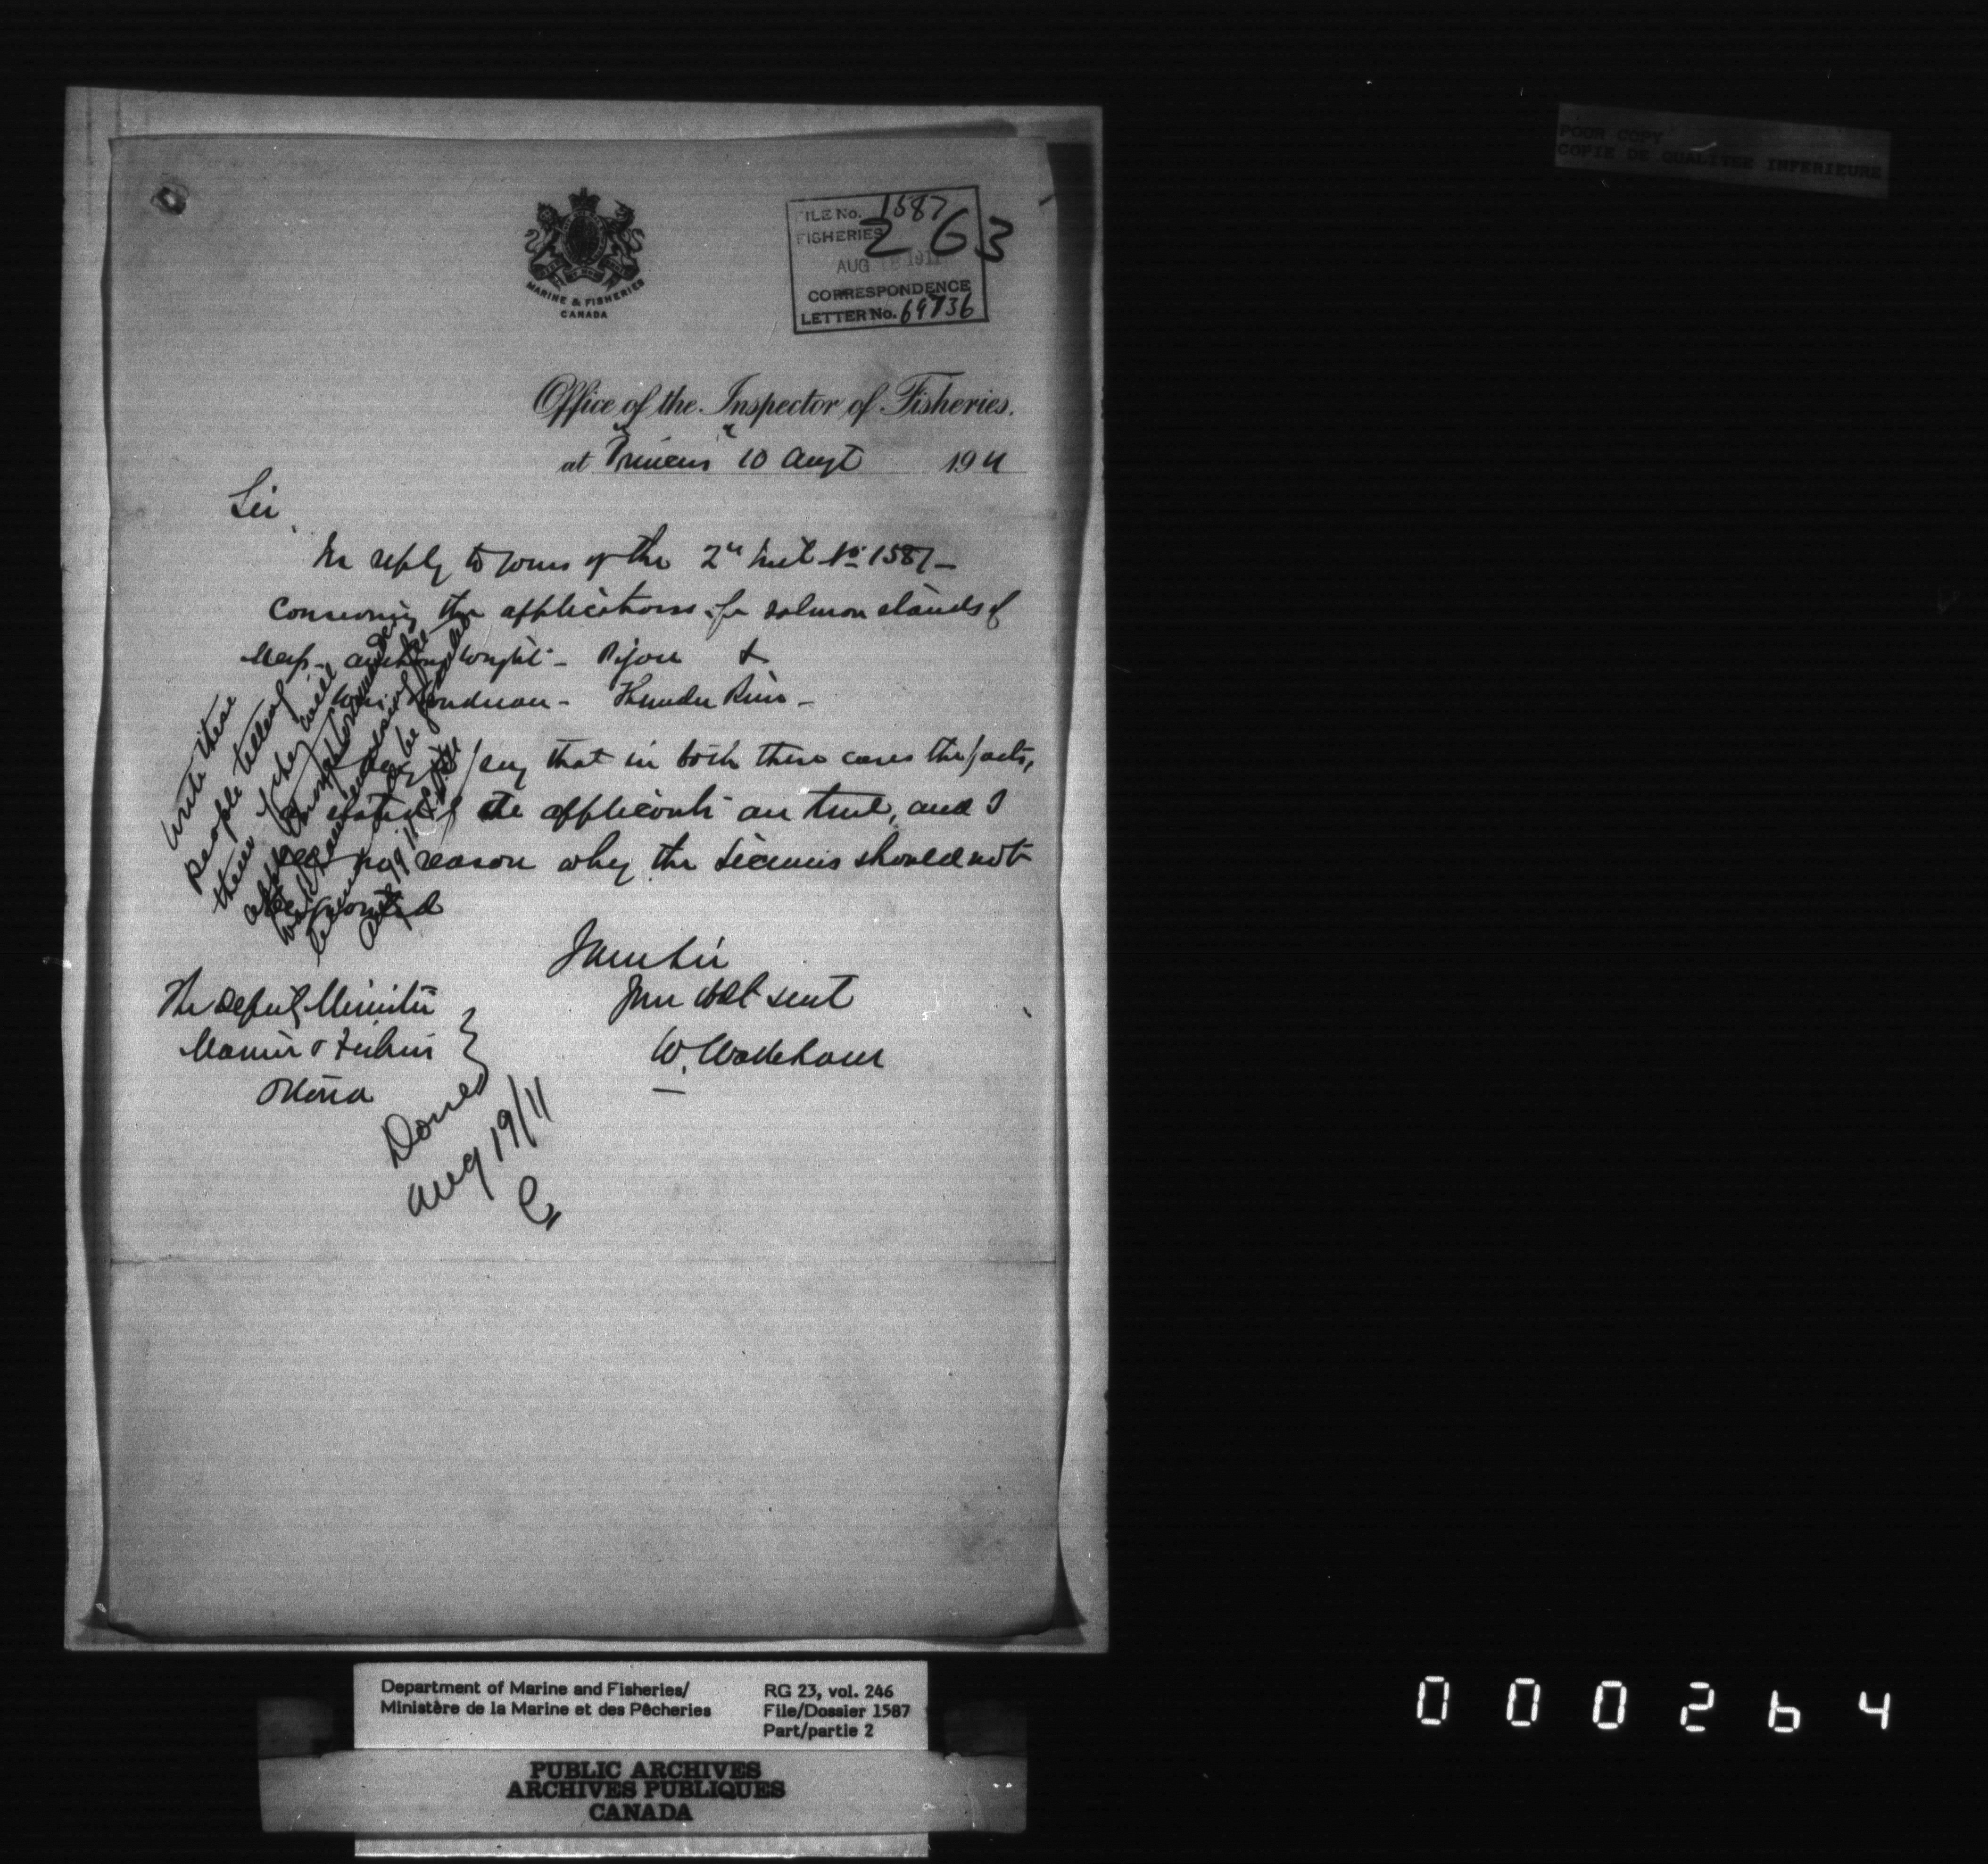 POOR COPY
COPIE DE QUALITEE INFERIEURE
MARINE & FISHERIES
CANADA
FILE No. 1587
FISHERIES
263
AUG 18 1911
CORRESPONDENCE
LETTER No. 69736
Office of the Inspector of Fisheries.
at "Princess" 10 Augt 1911
Sir,
In reply to yours of the 2nd Inst No 1587 –
Concerning the applications for salmon stands of
Messrs. Wright – &
– Thunder River –
say that in both these cases the facts,
stated by the applicants are true, and I
see no reason why the licenses should not
be granted
I am Sir
Your obt servt
W. Wakeham
The Deputy Minister
Marine & Fisheries
Ottawa
Write these
people telling
them if they will
Done
Aug 19/11
Department of Marine and Fisheries/
Ministère de la Marine et des Pêcheries
RG 23, vol. 246
File/Dossier 1587
Part/partie 2
PUBLIC ARCHIVES
ARCHIVES PUBLIQUES
CANADA
000264